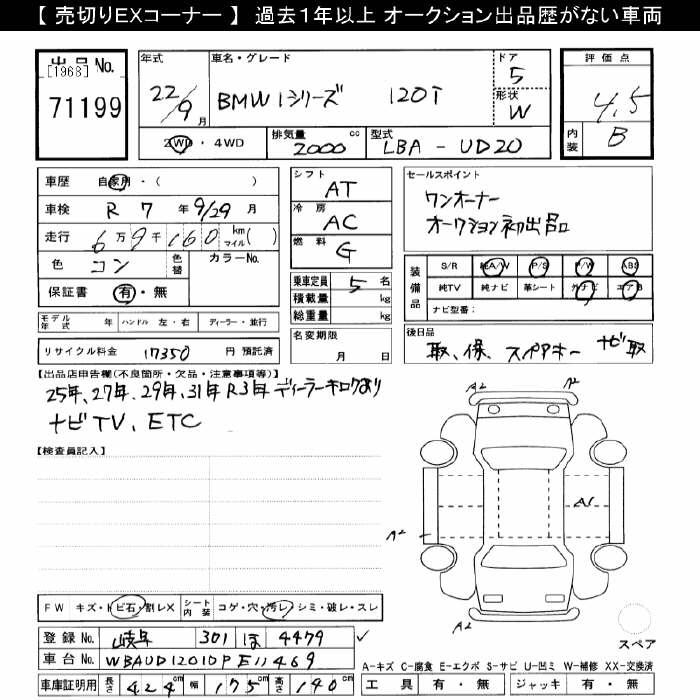 【 売切りEXコーナー 】 過去1年以上 オークション出品歴がない車両
出品No. [1968] 71199
年式 22/9月
車名・グレード BMW 1シリーズ 120i
ドア 5
形状 W
2WD・4WD
排気量 2000 cc
型式 LBA - UD20
評価点 4.5
内装 B
車歴 自家用・( )
車検 R 7 年 9/29 月
走行 6万9千160 km マイル( )
色 コン 色替 カラーNo.
保証書 有・無
シフト AT
冷房 AC
燃料 G
乗車定員 5 名
積載量 kg
総重量 kg
名変期限 月 日
セールスポイント
ワンオーナー
オークション初出品
装備品 S/R 純A/W P/S P/W ABS
純TV 純ナビ 革シート 外ナビ エアB
ナビ型番:
モデル年式 年 ハンドル 左・右 ディーラー・並行
リサイクル料金 17350 円 預託済
後日品
取、保、スペアキー ナビ取
【出品店申告欄(不良箇所・欠品・注意事項等)】
25年、27年、29年、31年 R3年 ディーラーキロクあり
ナビ TV、ETC
【検査員記入】
A2 A2
A1
A2
A2
FW キズ・トビ石・割レX シート内装 コゲ・穴・汚レ・シミ・破レ・スレ
登録No. 岐阜 301 ほ 4479
車台No. WBAUD12010PE11469
車庫証明用 長さ 424 cm 幅 175 cm 高さ 140 cm
スペア
A-キズ C-腐食 E-エクボ S-サビ U-凹ミ W-補修 XX-交換済
工具 有・無 ジャッキ 有・無